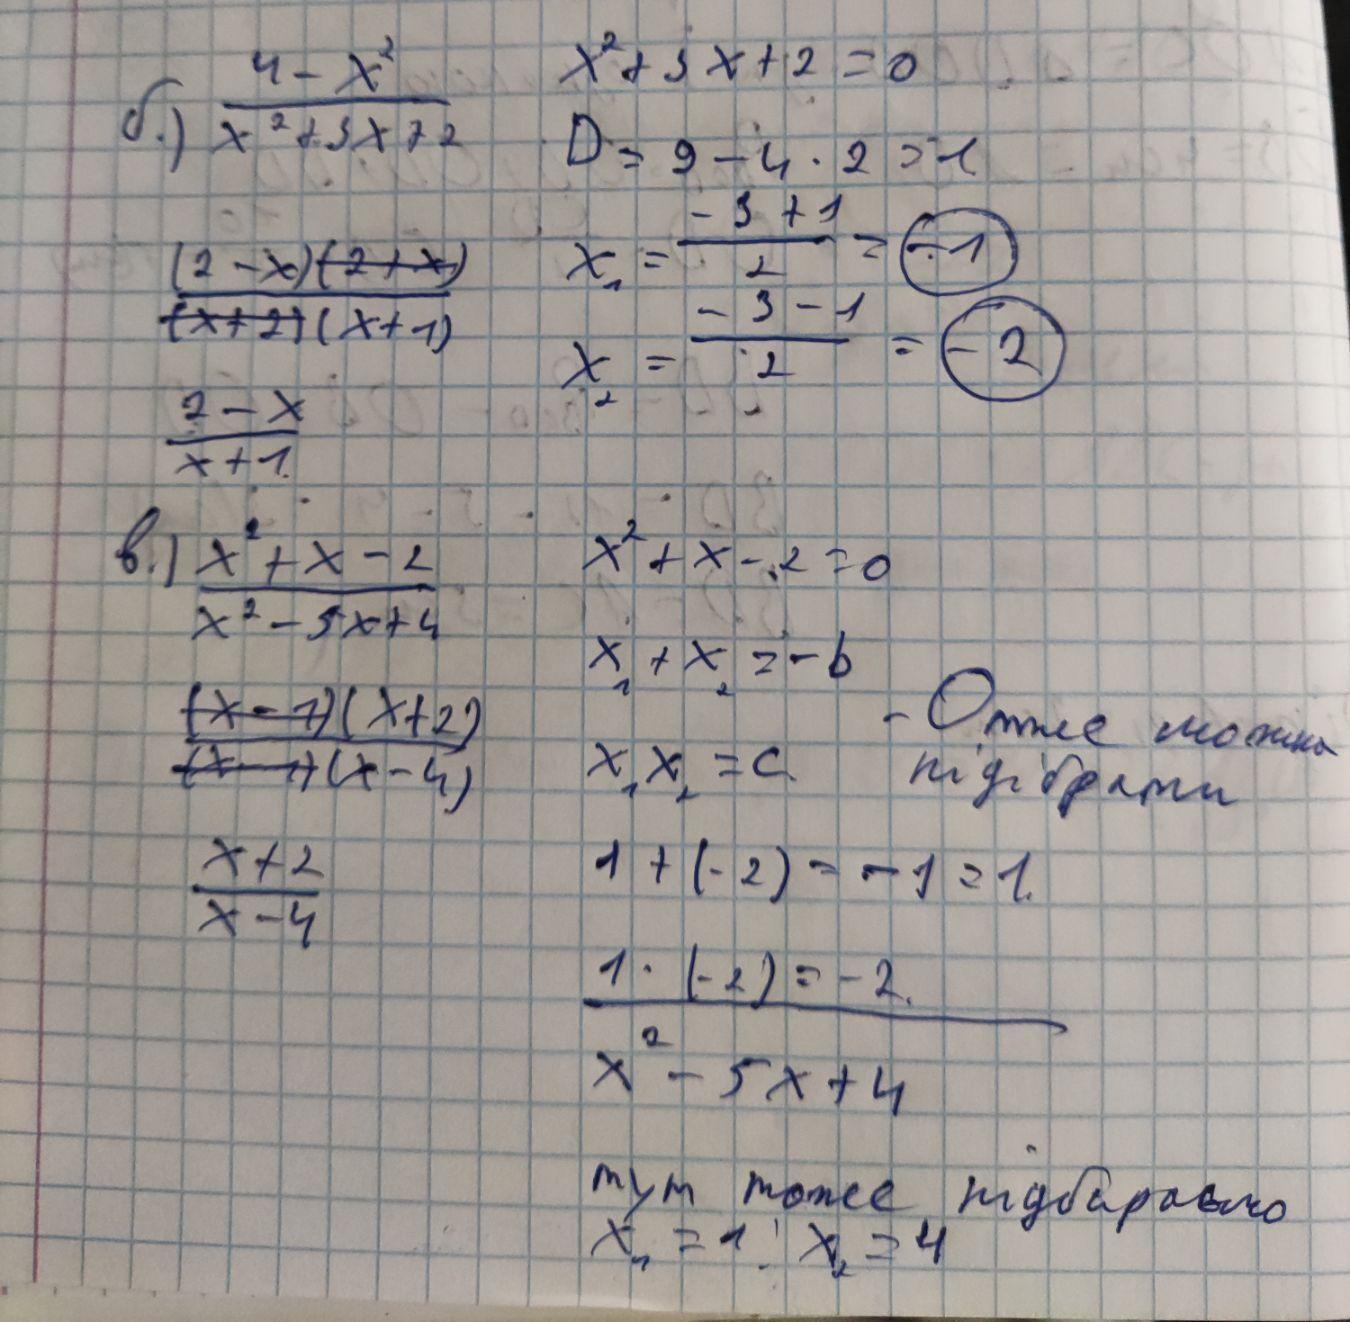 б.) 4 - x² / x² + 3x + 2
(2 - x)(2 + x) / (x + 2)(x + 1)
2 - x / x + 1
x² + 3x + 2 = 0
D = 9 - 4 · 2 = 1
x₁ = -3 + 1 / 2 = -1
x₂ = -3 - 1 / 2 = -2
в.) x² + x - 2 / x² - 5x + 4
(x - 1)(x + 2) / (x - 1)(x - 4)
x + 2 / x - 4
x² + x - 2 = 0
x₁ + x₂ = -b
x₁x₂ = c
- Отже можна
підібрати
1 + (-2) = -1 = 1.
1 · (-2) = -2.
x² - 5x + 4
тут тоже підбираємо
x₁ = 1 x₂ = 4